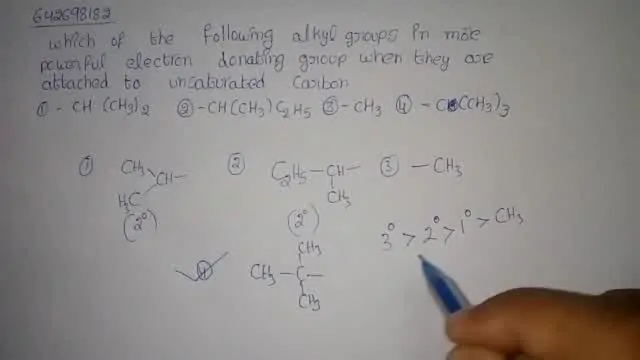 642698182
which of the following alkyl groups in more
powerful electron donating group when they are
attached to unsaturated carbon
① - CH (CH3)2 ② -CH(CH3)C2H5 ③ -CH3 ④ - C(CH3)3
① CH3 CH- ② C2H5-CH- ③ -CH3
H3C CH3
(2°) (2°) 3° > 2° > 1° > CH3
CH3
④ CH3-C-
CH3